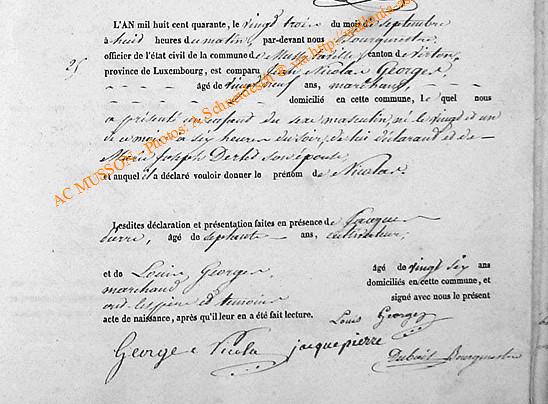 L'AN mil huit cent quarante, le vingt trois du mois de septembre
à huit heures du matin, par-devant nous Bourguestre,
officier de l'état civil de la commune de Musson la ville, canton de Virton,
province de Luxembourg, est comparu Jean Nicolas Georges
âgé de vingt neuf ans, marchand,
domicilié en cette commune, le quel nous
a présenté un enfant du sexe masculin, né le vingt et un
de ce mois à six heures du soir, de lui déclarant et de
Marie Joseph son épouse,
et auquel il a déclaré vouloir donner le prénom de Nicolas.
Lesdites déclaration et présentation faites en présence de Jacque
pierre, âgé de septante ans, cultivateur,
et de Louis Georges, âgé de vingt six ans
marchand domiciliés en cette commune, et
ont les père et témoins signé avec nous le présent
acte de naissance, après qu'il leur en a été fait lecture.
Louis Georges
George Nicola jacque pierre
Dubois Bourguestre
AC MUSSON - Photos: A. Schneider via http://